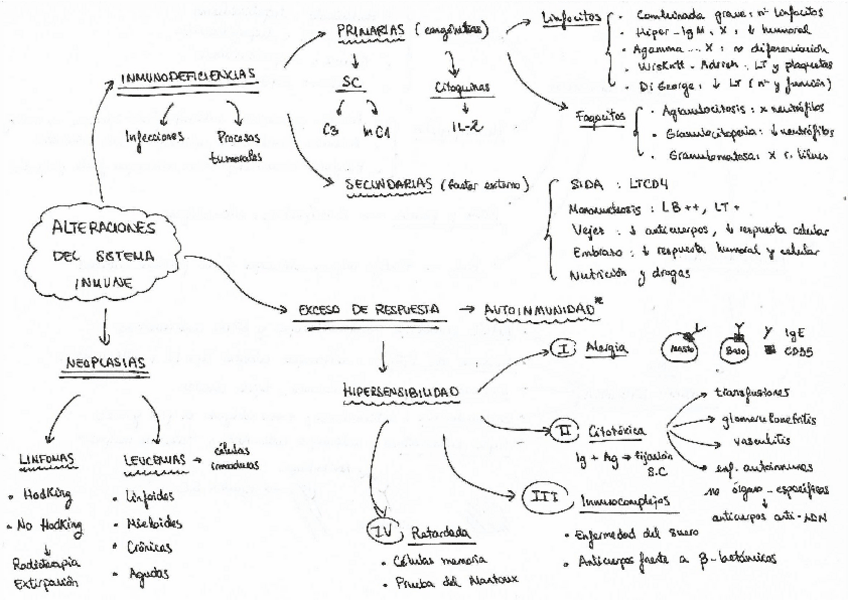 ALTERACIONES
DEL SISTEMA
INMUNE
INMUNODEFICIENCIAS
Infecciones
Procesos
tumorales
PRIMARIAS (congénitas)
SC
C3
Citoquinas
IL-2
Linfocitos
• Combinada grave: nº linfocitos
• Hiper-IgM: X: ↓ humoral
• Agamma... X: no diferenciación
• Wiskott-Adrich: LT y plaquetas
• DiGeorge: ↓ LT (nº y función)
Fagocitos
• Agranulocitosis: x neutrófilos
• Granulocitopenia: ↓ neutrófilos
• Granulomatosa: X
SECUNDARIAS (factor externo)
SIDA: LTCD4
Mononucleosis: LB ++, LT +
Vejez: ↓ anticuerpos, ↓ respuesta celular
Embrazo: ↓ respuesta humoral y celular
Nutrición y drogas
EXCESO DE RESPUESTA → AUTOINMUNIDAD*
HIPERSENSIBILIDAD
I Alergia
Masto
Baso
IgE
II Citotóxica
Ig + Ag → fijación
S.C
transfusiones
glomerulonefritis
vasculitis
enf. autoinmunes
no órgano-específicas
anticuerpos anti-ADN
III Inmunocomplejos
• Enfermedad del suero
• Anticuerpos frente a β-lactámicos
IV Retardada
• Células memoria
• Prueba del Mantoux
NEOPLASIAS
LINFOMAS
• Hodking
• No Hodking
Radioterapia
Extirpación
LEUCEMIAS → células
inmaduras
• Linfoides
• Mieloides
• Crónicas
• Agudas